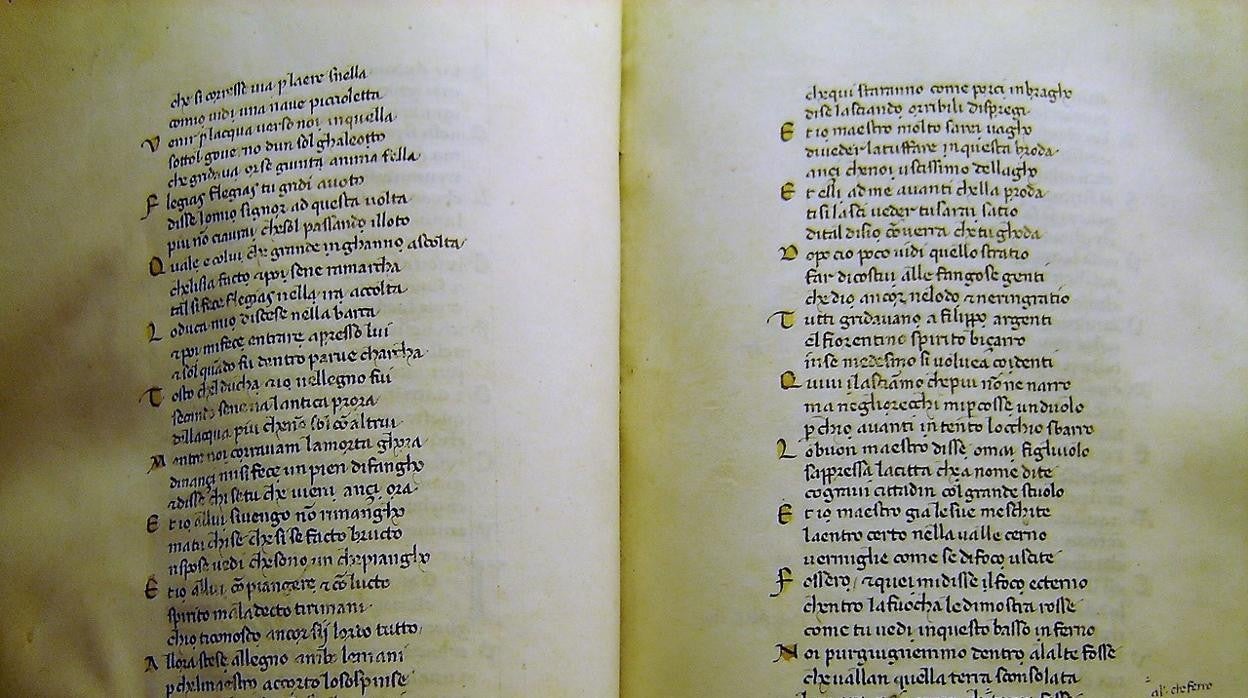 che si corresse uia p laere snella
comio uidi una naue piccioletta
Venir p lacqua uerso noi inquella
sottol gouerno dun sol ghaleotto
che gridaua orse giunta anima fella
Flegias flegias tu gridi auoto
disse lomio signor ad questa uolta
piu nō ciaurai chesol passando illoto
Quale e colui che grande inghanno ascolta
chelisia facto ⁊ poi sene ramarcha
tal si fece flegias nella ira accolta
Loduca mio discese nella barca
⁊ poi mifece entrare apresso lui
⁊ sol quādo fu dentro parue charcha
Tosto chelducha ⁊ io nellegno fui
secando sene ua lantica prora
dellacqua piu che nō sol cō altrui
Mentre noi corrauam lamorta ghora
dinançi misi fece un pien difangho
⁊ disse chi se tu che uieni ançi ora
Et io allui siuengo nō rimangho
ma tu chise che si se facto bructo
rispose uedi chesono un chepiangho
Et io allui cō piangere ⁊ cō lucto
spirito maladecto tirimani
chio ticonosco ancor sij lordo tutto
Allora stese allegno ambe lemani
p chelmaestro accorto losospinse
che qui staranno come porci inbragho
dise lasciando orribili dispregi
Et io maestro molto sarei uagho
diueder lattuffare inquesta broda
ançi chenoi uscissimo dellagho
Et elli ad me auanti chella proda
ti si lasci ueder tu sarai satio
dital disio cōuerra che tu ghoda
Dopo cio poco uidi quello stratio
far dicostui alle fangose genti
che dio ancor nelodo ⁊ neringratio
Tutti gridauano a filippo argenti
el fiorentino spirito biçarro
inse medesmo si uoluea coidenti
Quiui il lasciāmo che piu nō ne narro
ma negliorecchi mi pcosse un duolo
p chio auanti intento locchio sbarro
Lobuon maestro disse omai figliuolo
sappressa lacitta cha nome dite
cograui cittadin col grande stuolo
Et io maestro gia lesue meschite
laentro certo nella ualle cerno
uermiglie come se difoco uscite
Fossero ⁊ quei midisse il foco ecterno
chentro lafuocha le dimostra rosse
come tu uedi inquesto basso inferno
Noi pur giugnemmo dentro alalte fosse
che uallan quella terra sconsolata
che ferro